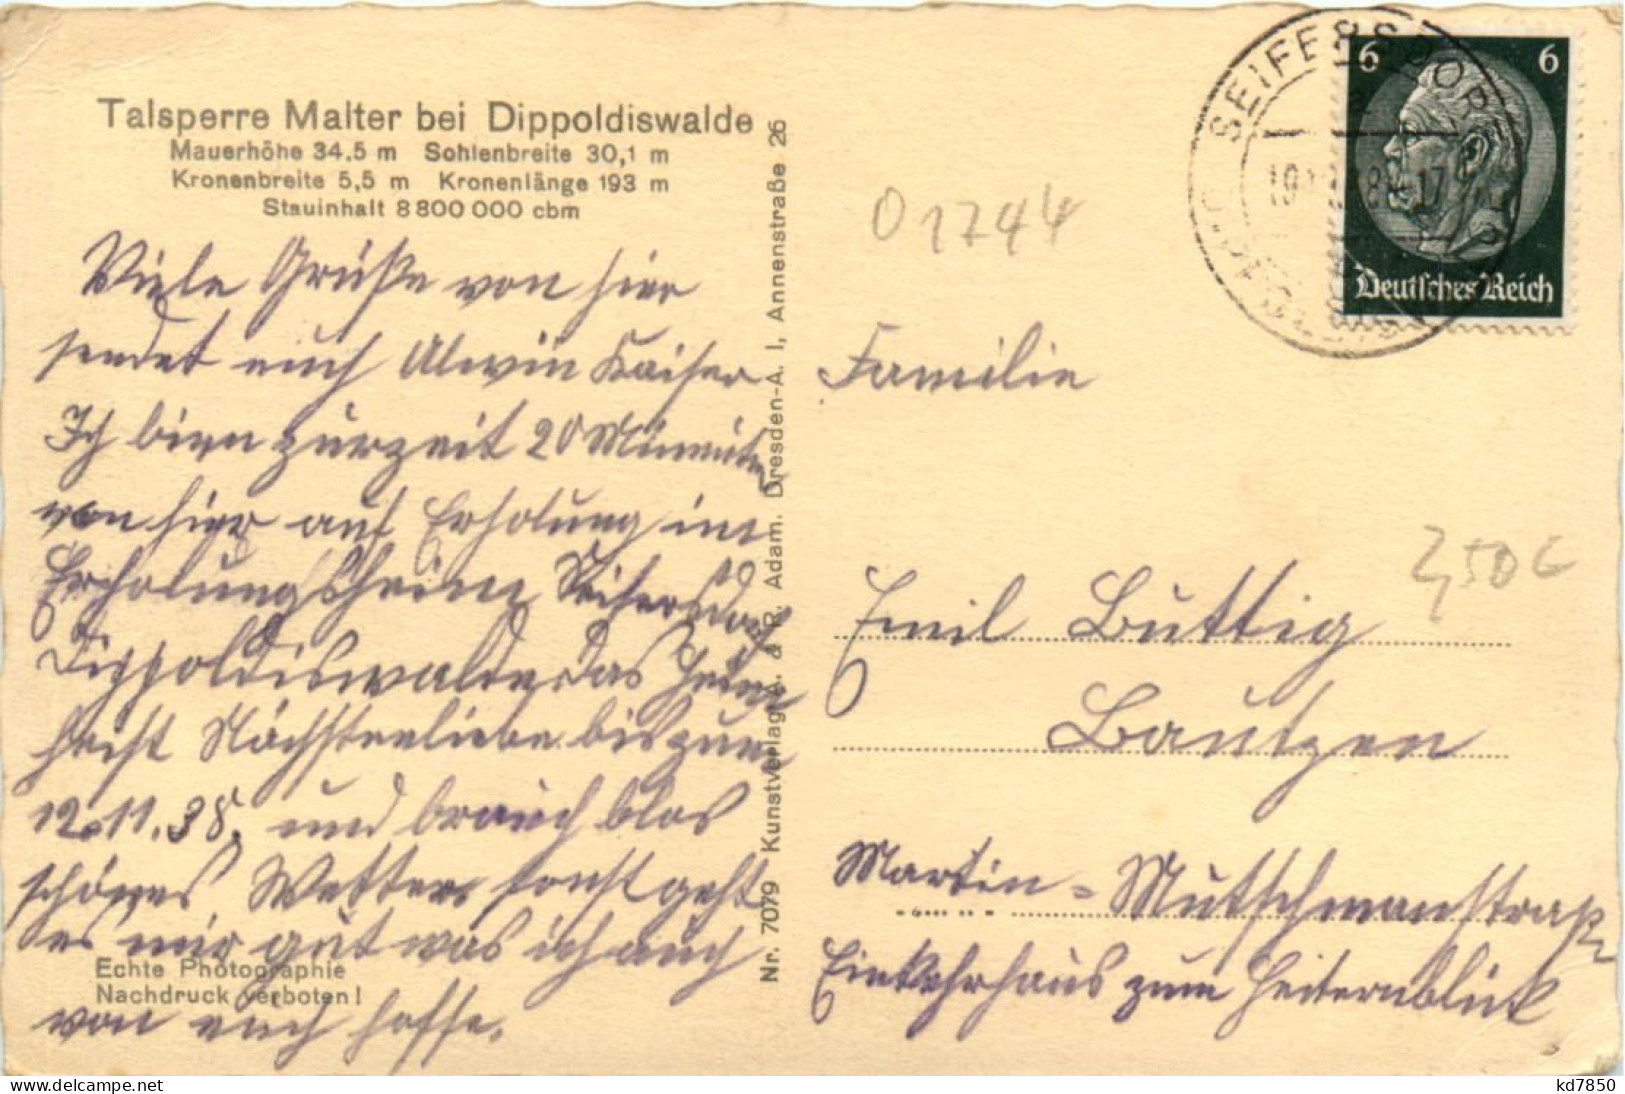 Talsperre Malter bei Dippoldiswalde
Mauerhöhe 34,5 m Sohlenbreite 30,1 m
Kronenbreite 5,5 m Kronenlänge 193 m
Stauinhalt 8 800 000 cbm
Viele Grüße von hier
sendet euch Alwin Kaiser
Ich binn zurzeit 20 Minnuten
von hier auf Erholung im
Erholungsheim Seifersdorf
Dippoldiswalde das Heim
heist Nächstenliebe bis zum
12.11.38. und brauch blos
schönes Wetter sonst geht
es mir gut was ich auch
von euch hoffe.
Echte Photographie
Nachdruck verboten!
Nr. 7079 Kunstverlag A. & R. Adam. Dresden-A. I, Annenstraße 26
SEIFERSDORF
6 6
Deutsches Reich
01744
Familie
3,50 €
Emil Büttig
Bautzen
Martin-Mutschmanstraße
Einkehrhaus zum Heiternblick
kd7850